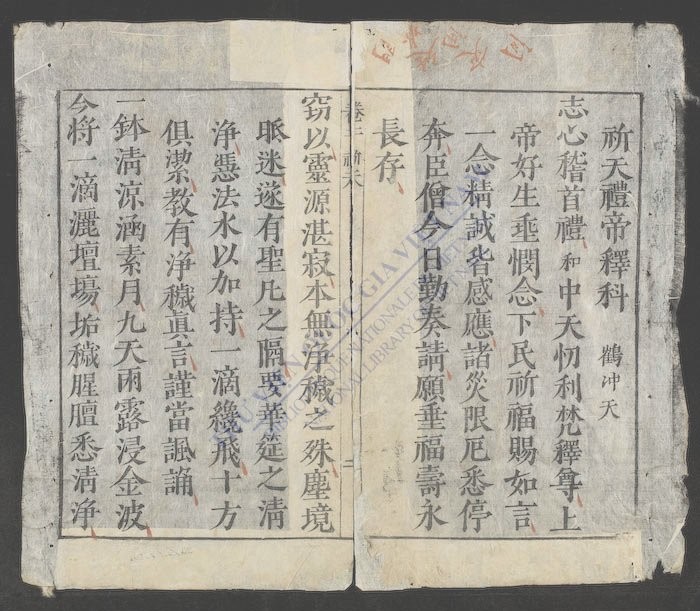 祈天禮帝釋科 鶴冲天
志心稽首禮和中天忉利梵釋尊上
帝好生垂憫念下民祈福賜如言
一念精誠皆感應諸災限厄悉停
奔臣僧今日勤奏請願垂福壽永
長存
卷二 祈天 二
窃以靈源湛寂本無净穢之殊塵境
昏迷遂有聖凡之隔要華筵之清
净憑法水以加持一滴纔飛十方
俱潔教有净穢真言謹當諷誦
一鉢清凉涵素月九天雨露浸金波
今将一滴灑壇塲垢穢腥膻悉清净
THƯ VIỆN QUỐC GIA VIỆT NAM
BIBLIOTHÈQUE NATIONALE DU VIETNAM
NATIONAL LIBRARY OF VIETNAM